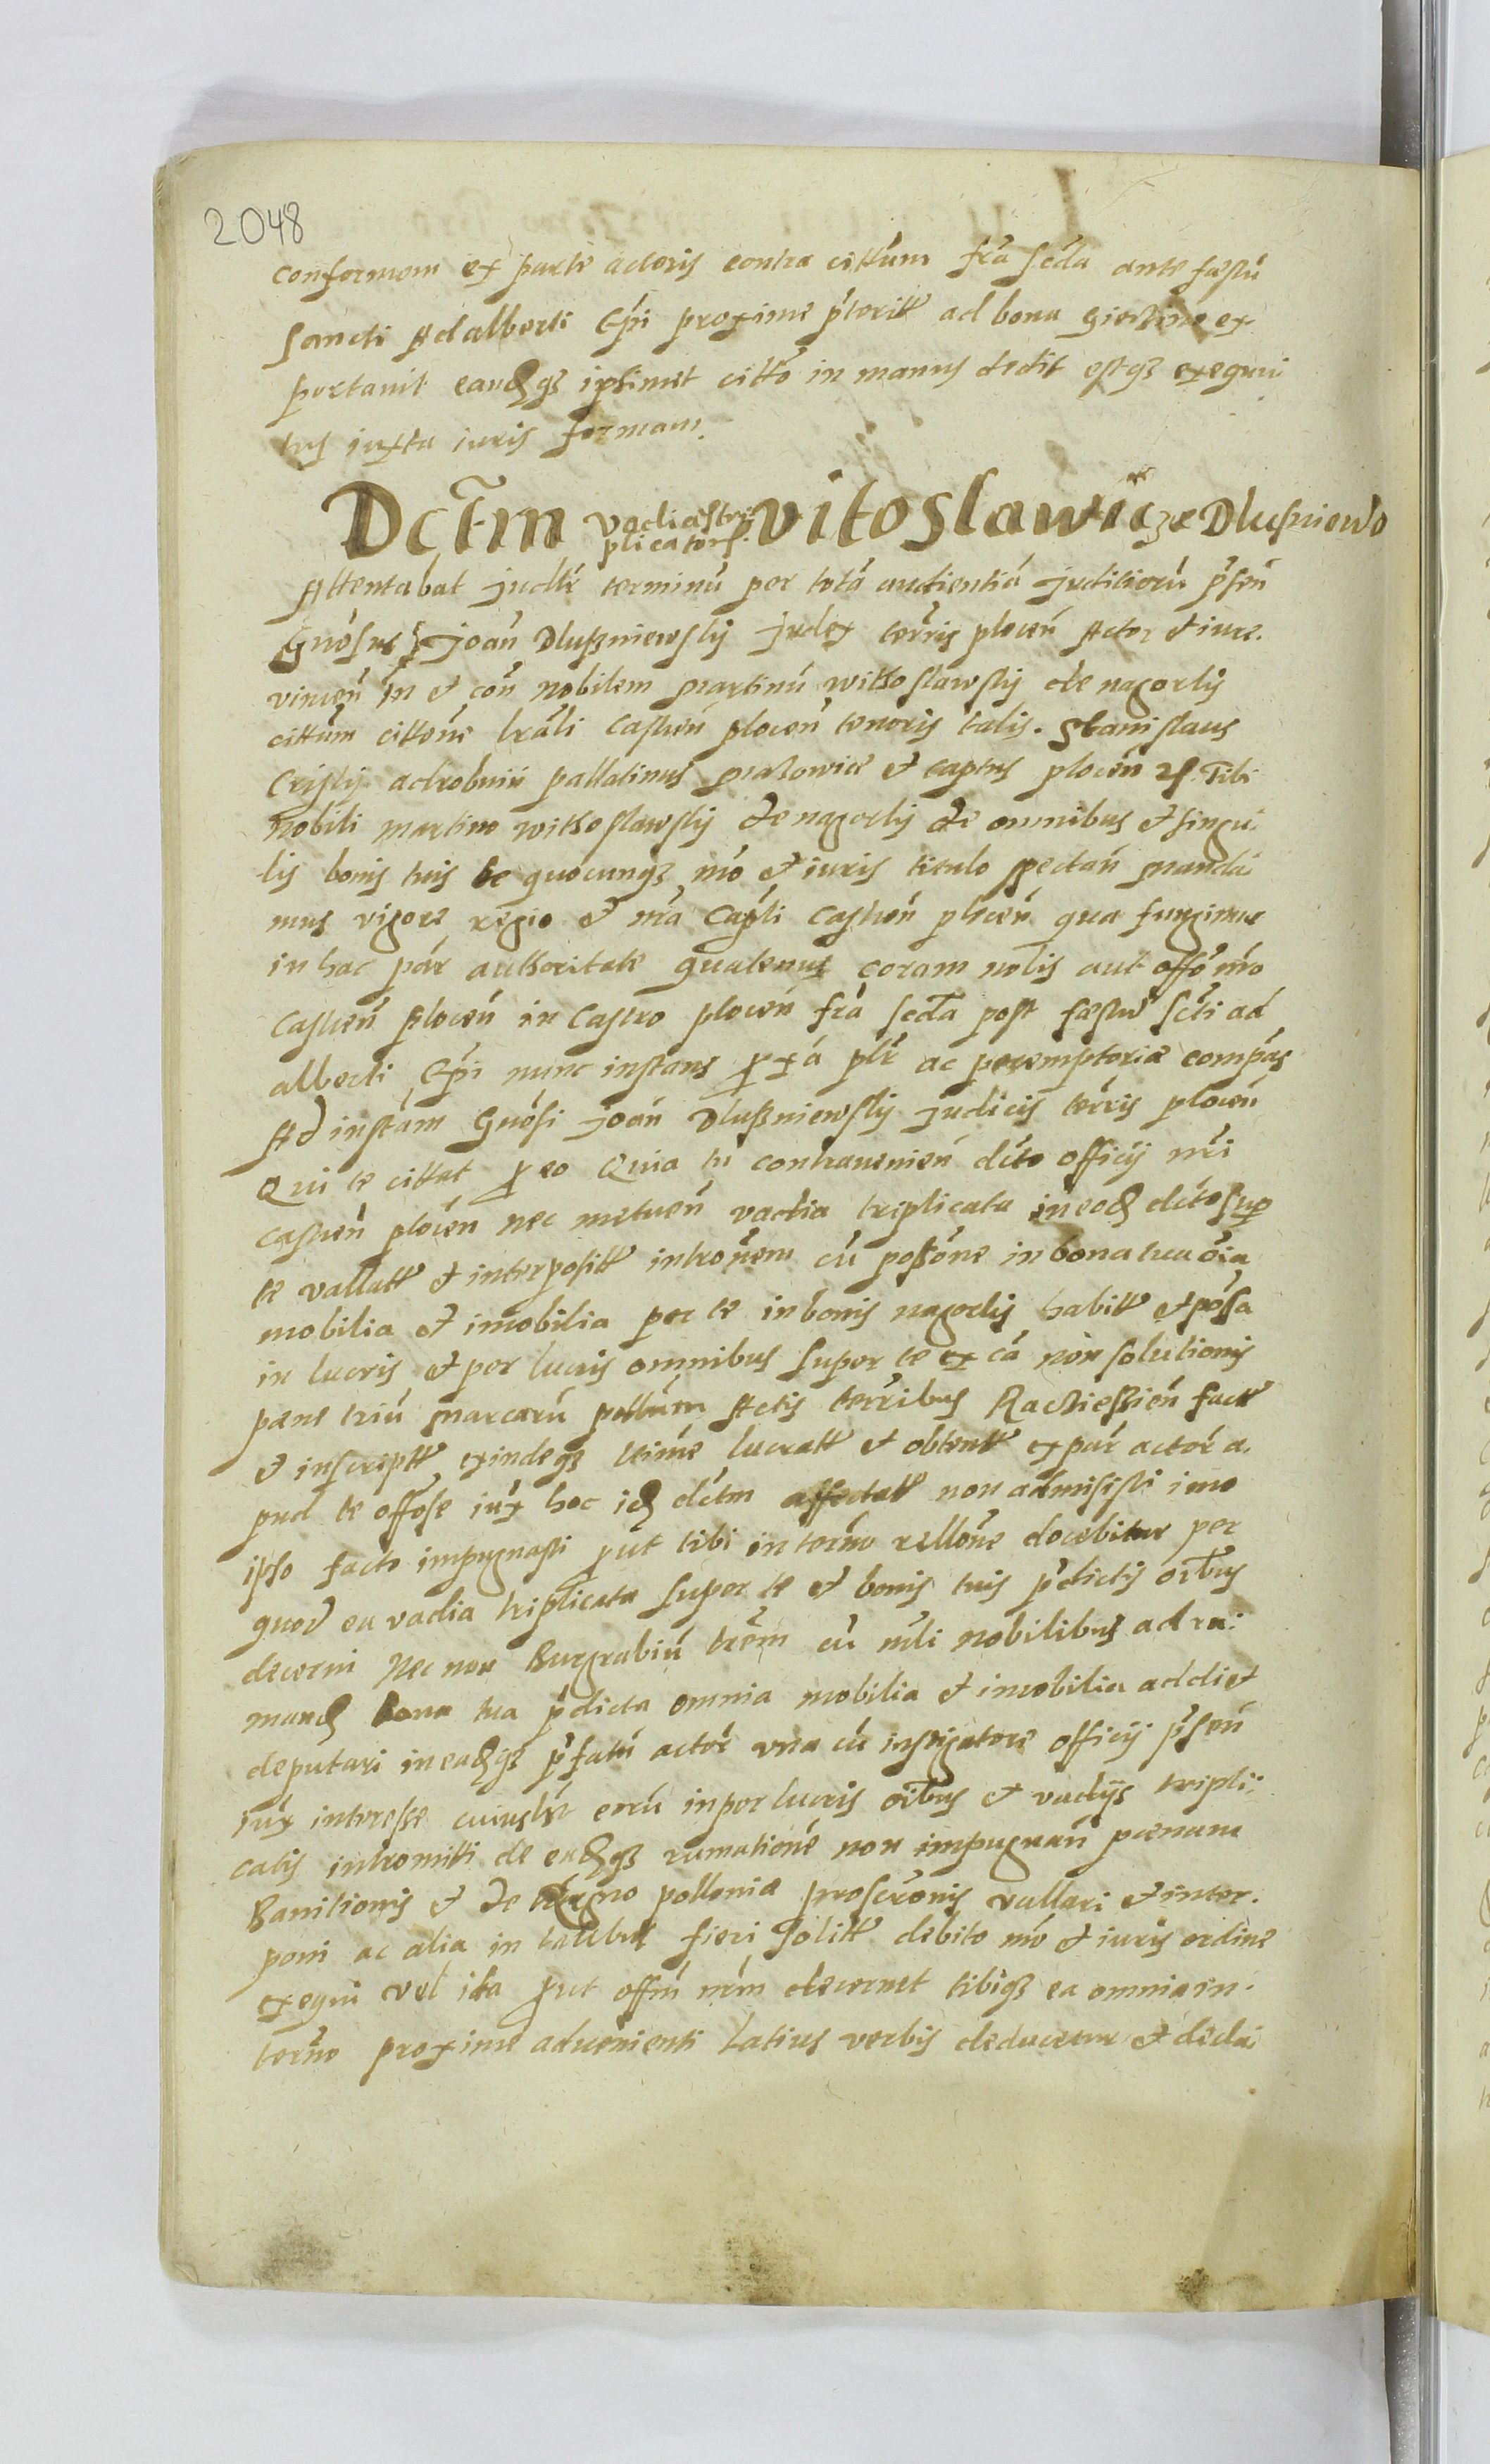 2048
conformem ex parte actoris contra cittum fra scda ante festu
sancti Adalberti Epi proxime pterit ad bona ex
portavit eandqȝ ipsimet citto in manus dedit estqȝ exequu
tus iuxta iuris formam.
Dctm vadia stri vitoslawic ȝe Dlußniewo
plicator.
Attentabat Judlr terminu per tota audientia Juditioru psen
Gnosus Joan Dlußniewsky Judex terris plocen Actor et iure
vincen in et con nobilem Martinu witkoslawsky de nagorky
cittum cittone lrali castren plocen tenoris talis. Stanislaus
Crysky a drobnin pallatinus Mazowie et captus plocen Tibi
Nobili Martino witkoslawsky de nagorky de omnibus et singu
lis bonis tuis de quocunqȝ mo et iuris titulo spectan Manda
mus vigore regio et nra Capli castren plocen qua fungimur
in hac par authoritate quatenus coram nobis aut offo nro
castren plocen in Castro plocen fra scda post festu scti ad
alberti Epi nunc instans pxa plr ac peremptorie compas
Ad instam Gnosi Joan Dlußniewsky Judicis terris plocen
Qui te cittat p eo Quia tu contravenien dcto officij nri
castren plocen nec metuen vadia triplicata in eod dcto sup
te vallat et interposit intronem cu posßone in bona tua oia
mobilia et imobilia per te in bonis nagorky habit et possa
in lucris et per lucris omnibus super te ex ca non solutionis
pene triu Marcaru pollum Actis terribus Raczießien fact
et inscript exindeqȝ ltime lucrat et obtent ex par actor a
pud te offose iux hoc id dctm affectat non admisisti imo
ipso facto impugnasti put tibi in terno rellone docebitur per
quod ea vadia triplicata super te et bonis tuis pdictis oibus
decerni Nec non Burgrabiu trem cu nli nobilibus ad ra
mand bona tua pdicta omnia mobilia et imobilia addi et
deputari in eadqȝ pfatu actor una cu instigatore officij psen
iux interesse cuiuslt eoru in per lucris oibus et vadijs tripli
catis intromitti de eadqȝ rumatione non impugnan poenam
Banitionis et de Regno pollonie proscronis vallari et inter
poni ac alia in talibus fieri solit debito mo et iuris ordine
exequi vel ita put offm nrm decernet tibiqȝ ea omnia in
terno proxime advenienti Latius verbis deducetur et decla